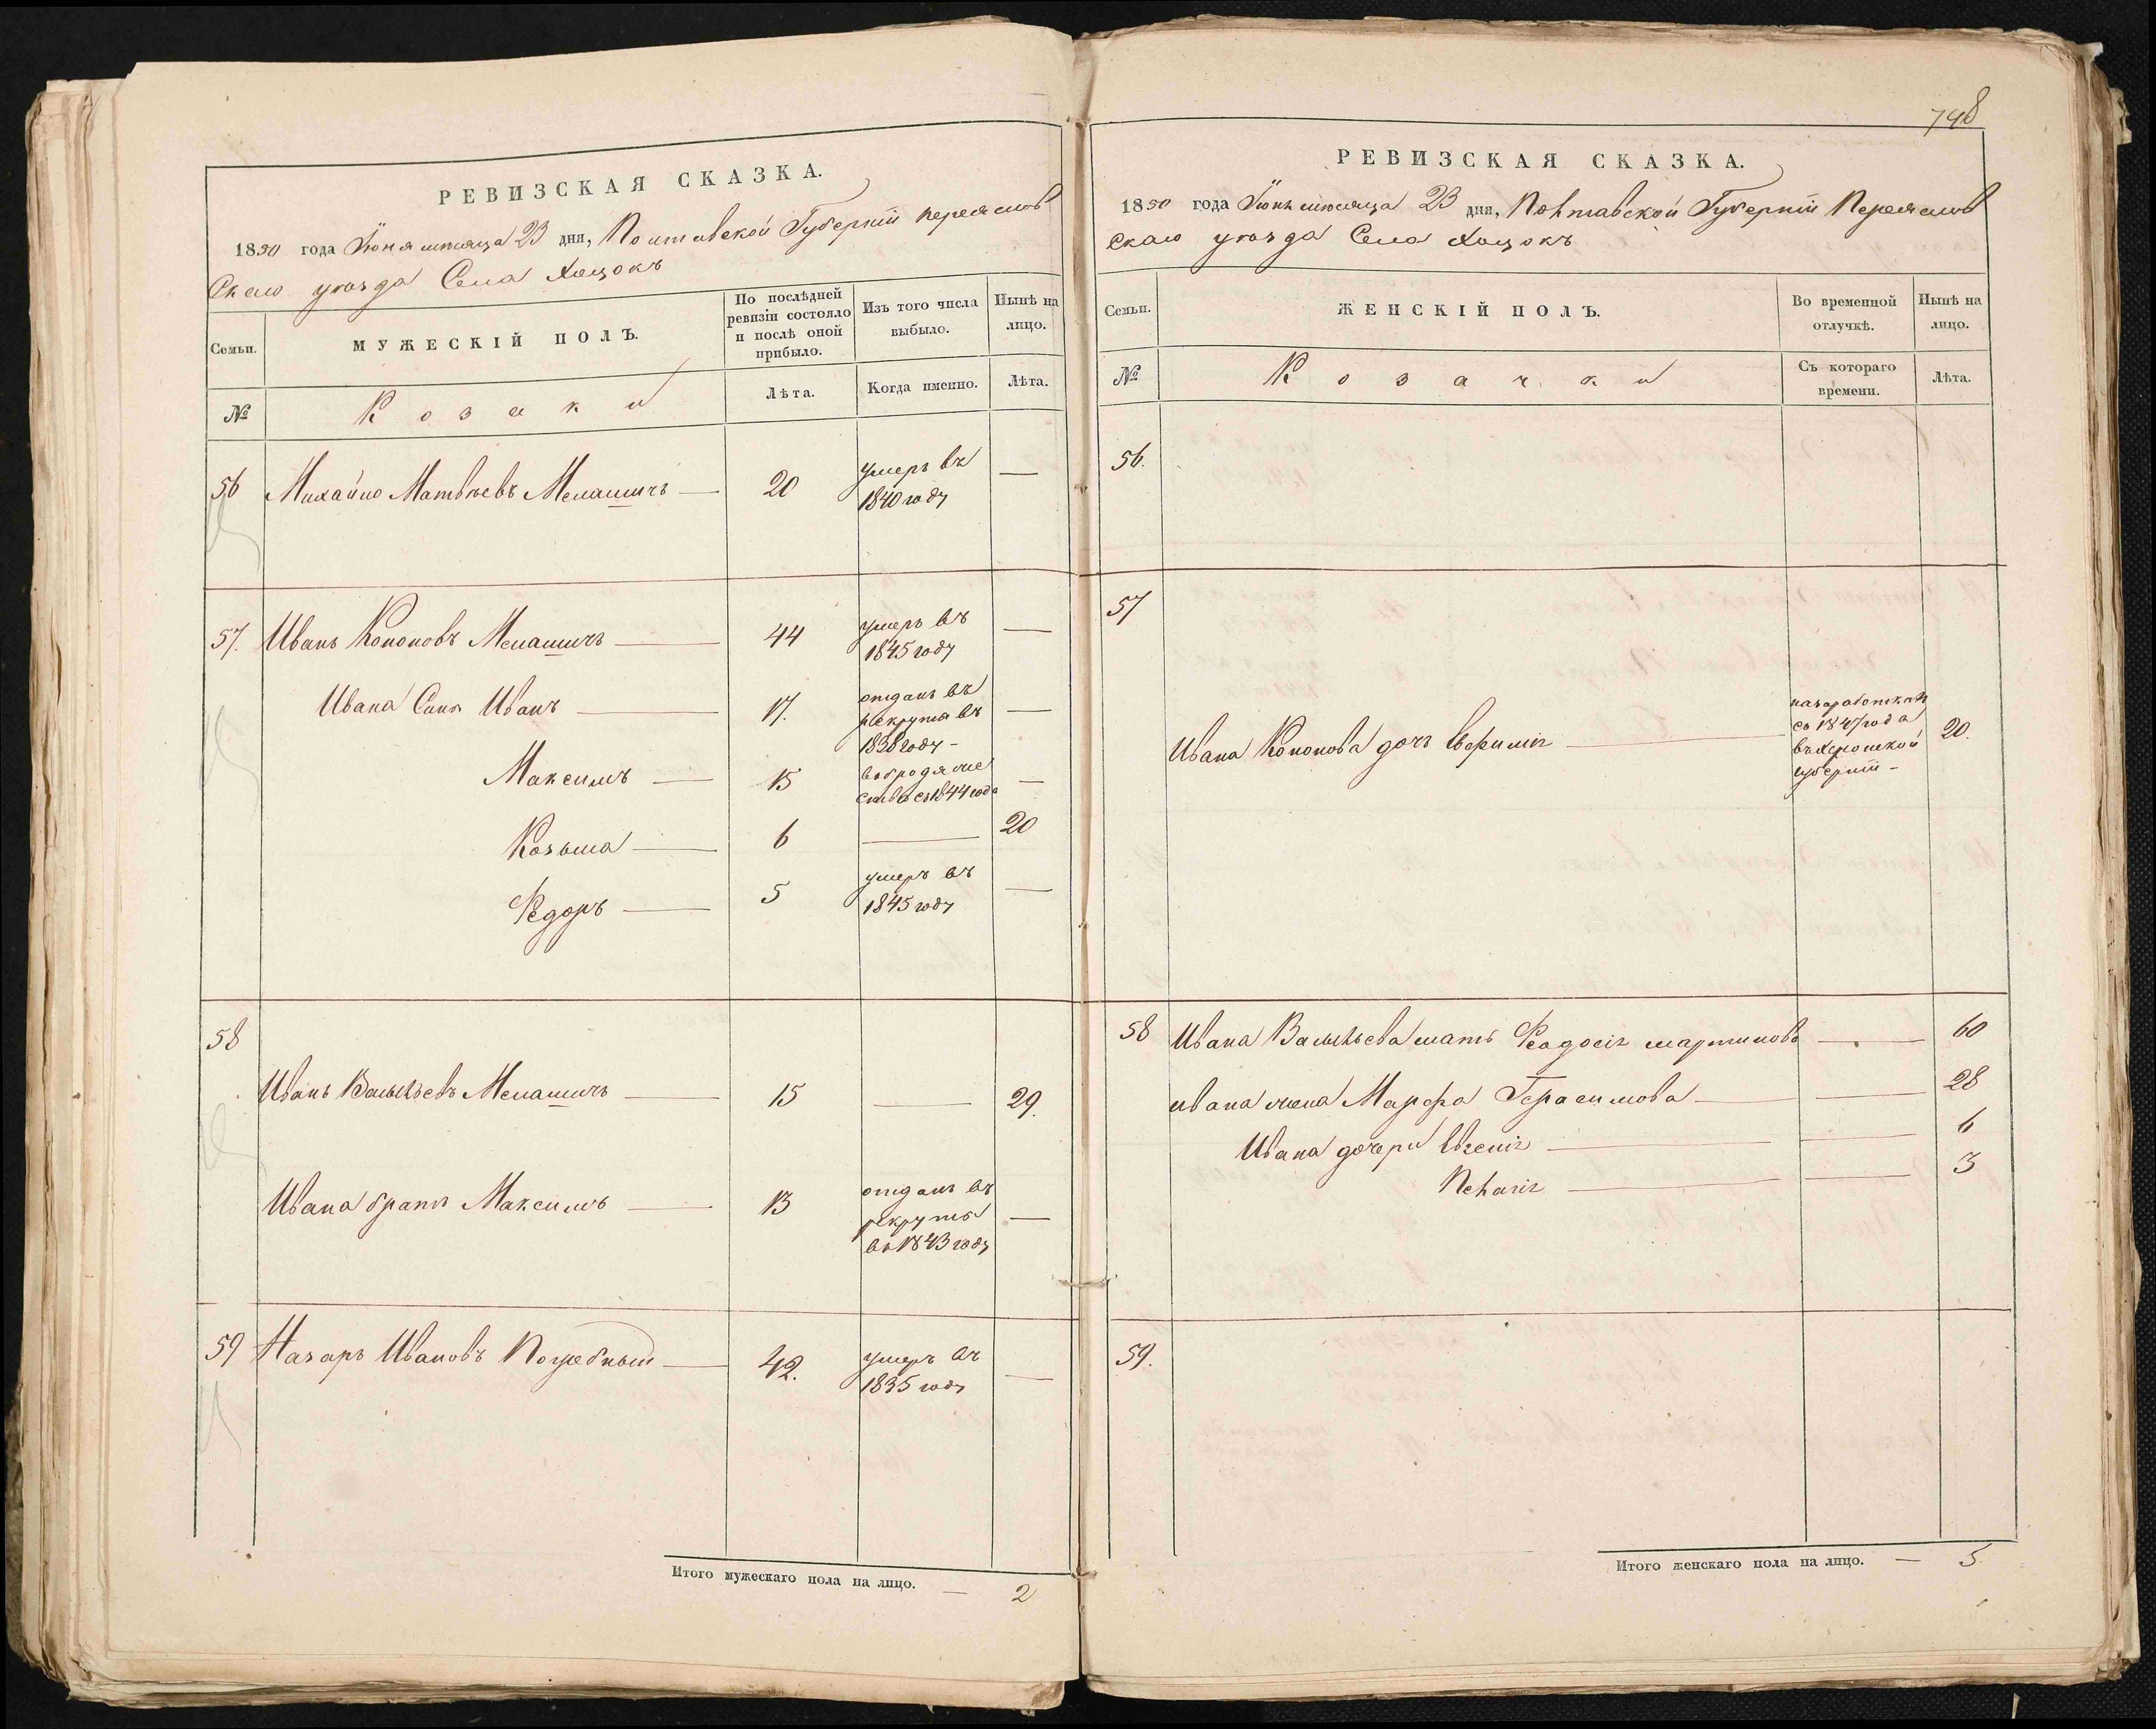 РЕВИЗСКАЯ СКАЗКА.
1850 года Іюня мѣсяца 23 дня, Полтавской Губерніи Переяслов
скаго уѣзда Села Хоцокъ
Семьи.
МУЖЕСКІЙ ПОЛЪ.
По послѣдней
ревизіи состояло
и послѣ оной
прибыло.
Изъ того числа
выбыло.
Нынѣ на
лицо.
№
Козаки
Лѣта.
Когда именно.
Лѣта.
56 Михайло Матвѣевъ Мелашичъ — 20 умеръ въ —
1840 году
57. Иванъ Кононовъ Мелашичъ — 44 умеръ въ —
1845 году
Ивана Синъ Иванъ — 17. отданъ въ —
рекруты въ
1838 году -
Максимъ — 15 въ бродяже —
ствѣ съ 1844 года
Козьма — 6 — 20
Ѳедоръ — 5 умеръ въ —
1845 году
58
Иванъ Васильевъ Мелашичъ — 15 — 29.
Ивана братъ Максимъ — 13 отданъ въ —
рекруты
въ 1843 году
59 Назаръ Ивановъ — 42. умеръ въ —
1835 году
Итого мужескаго пола на лицо. — 2
748
РЕВИЗСКАЯ СКАЗКА.
1850 года Іюнь мѣсяца 23 дня, Полтавской Губерніи Переяслов
скаго уѣзда Села Хоцокъ
Семьи.
ЖЕНСКІЙ ПОЛЪ.
Во временной
отлучкѣ.
Нынѣ на
лицо.
№
Козачки
Съ котораго
времени.
Лѣта.
56.
57
Ивана Кононова дочь Евфимія — 20.
на заработкахъ
съ 1847 года
въ Херсонской
губерніи -
58 Ивана Васильева мать Ѳеодосія Мартинова — 60
Ивана жена Марфа Герасимова — 28
Ивана дочери Евгенія — 6
Пелагія — 3
59.
Итого женскаго пола на лицо. — 5.